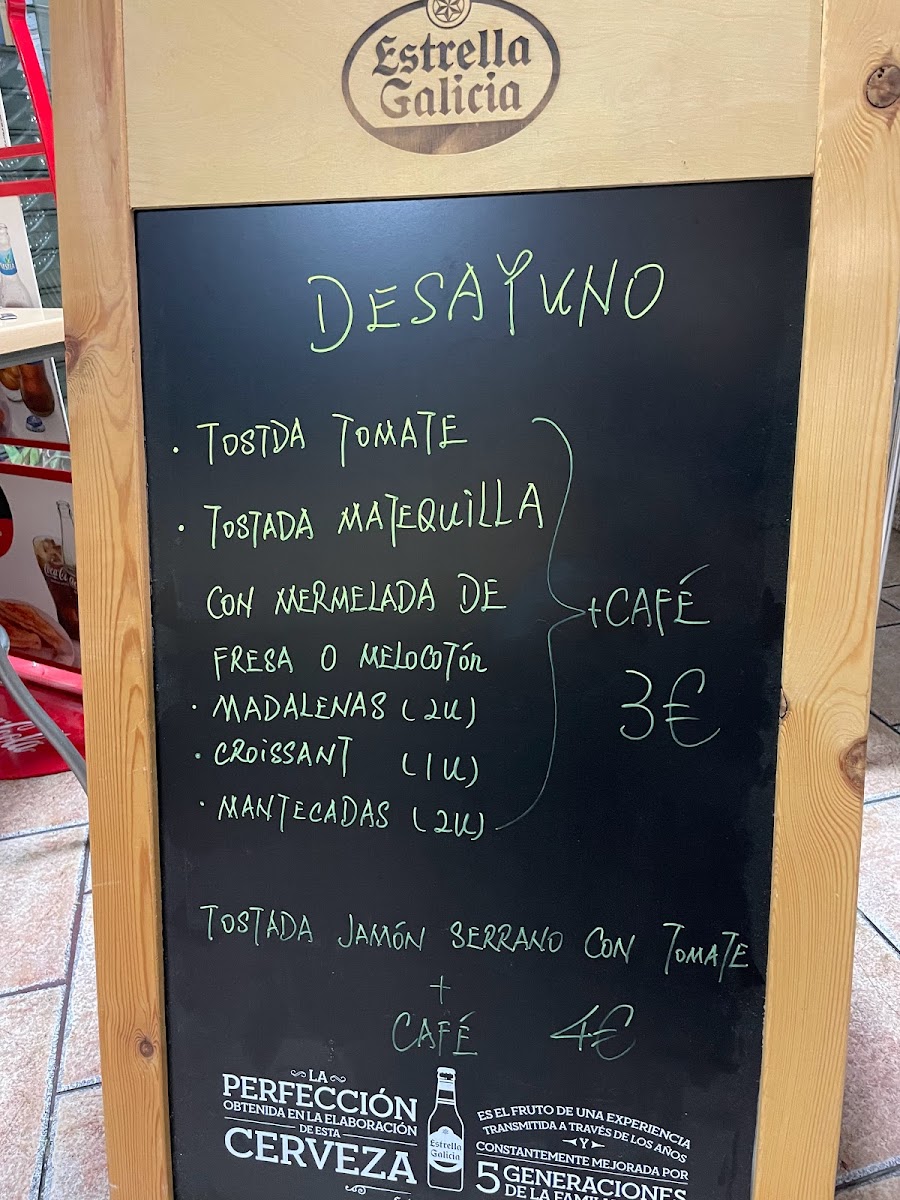 Estrella
Galicia
DESAYUNO
· TOSTDA TOMATE
· TOSTADA MATEQUILLA
CON MERMELADA DE
FRESA O MELOCOTÓN
· MADALENAS (2U)
· CROISSANT (1U)
· MANTECADAS (2U)
+CAFÉ
3€
TOSTADA JAMÓN SERRANO CON TOMATE
+
CAFÉ 4€
LA
PERFECCIÓN
OBTENIDA EN LA ELABORACIÓN
DE ESTA
CERVEZA
Estrella
Galicia
ES EL FRUTO DE UNA EXPERIENCIA
TRANSMITIDA A TRAVÉS DE LOS AÑOS
Y
CONSTANTEMENTE MEJORADA POR
5 GENERACIONES
DE LA FAMILIA
Coca-Cola